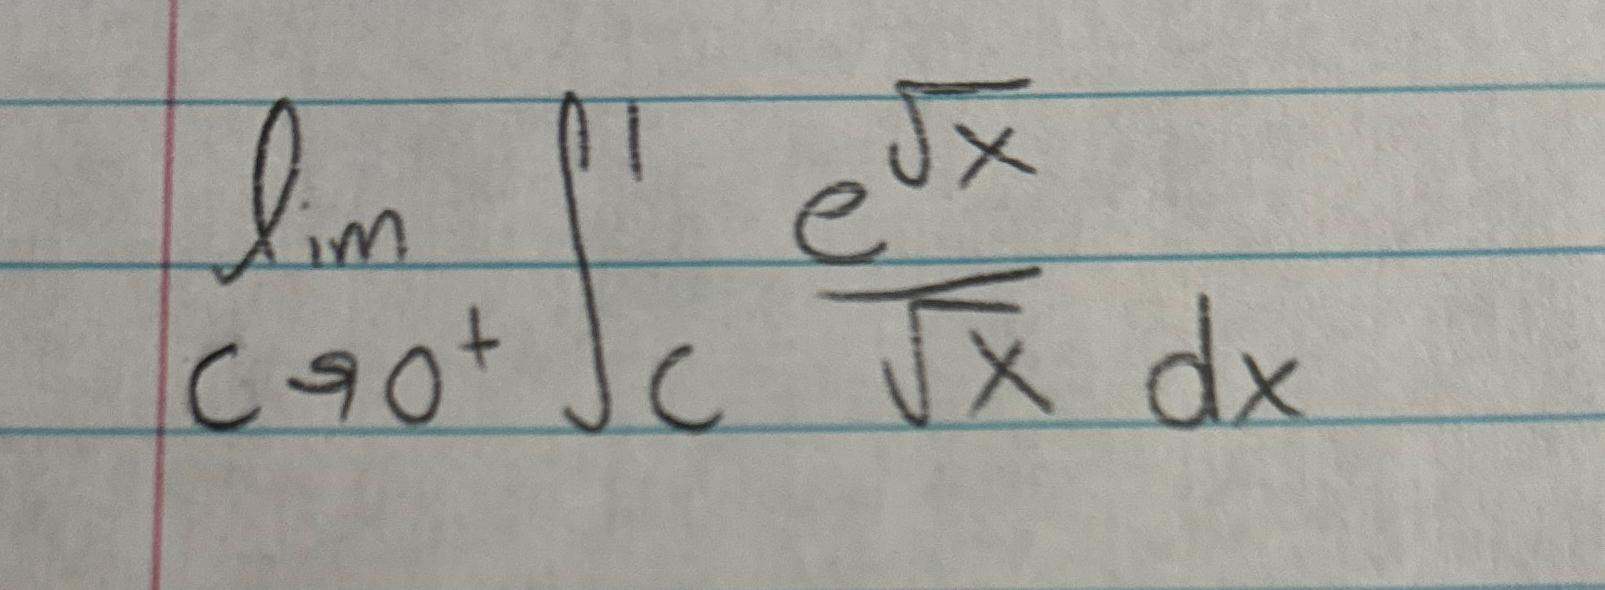 lim c→0⁺ ∫_c^1 e^√x / √x dx